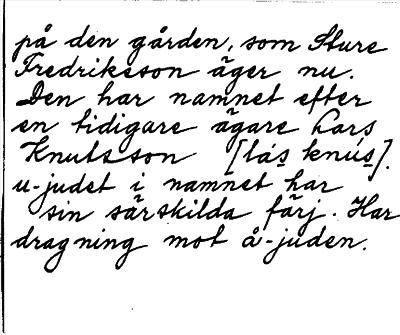 på den gården, som Sture
Fredrikeson äger nu.
Den har namnet efter
en tidigare ägare Lars
Knutsson [lás knús].
u-judet i namnet har
sin särskilda färj. Har
dragning mot å-juden.